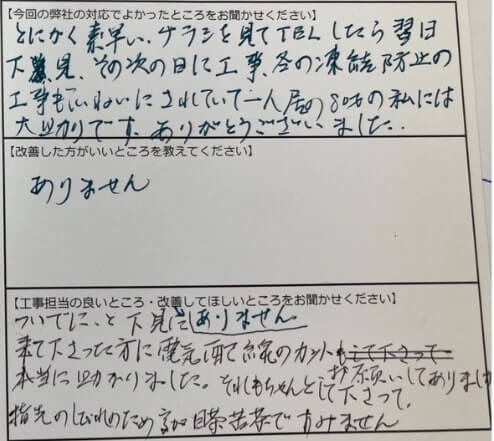 【今回の弊社の対応でよかったところをお聞かせください】
とにかく素早い、チラシを見てTELしたら翌日
下見、その次の日に工事、冬の凍結防止の
工事もていねいにされていて一人居の80才の私には
大助かりです。ありがとうございました。
【改善した方がいいところを教えてください】
ありません
【工事担当の良いところ・改善してほしいところをお聞かせください】
ついでに、と下見に ありません
来て下さった方に電気配線のカットも
お願いしてありました
本当に助かりました。それもちゃんとして下さって、
指先のしびれのため 苦茶ですみません